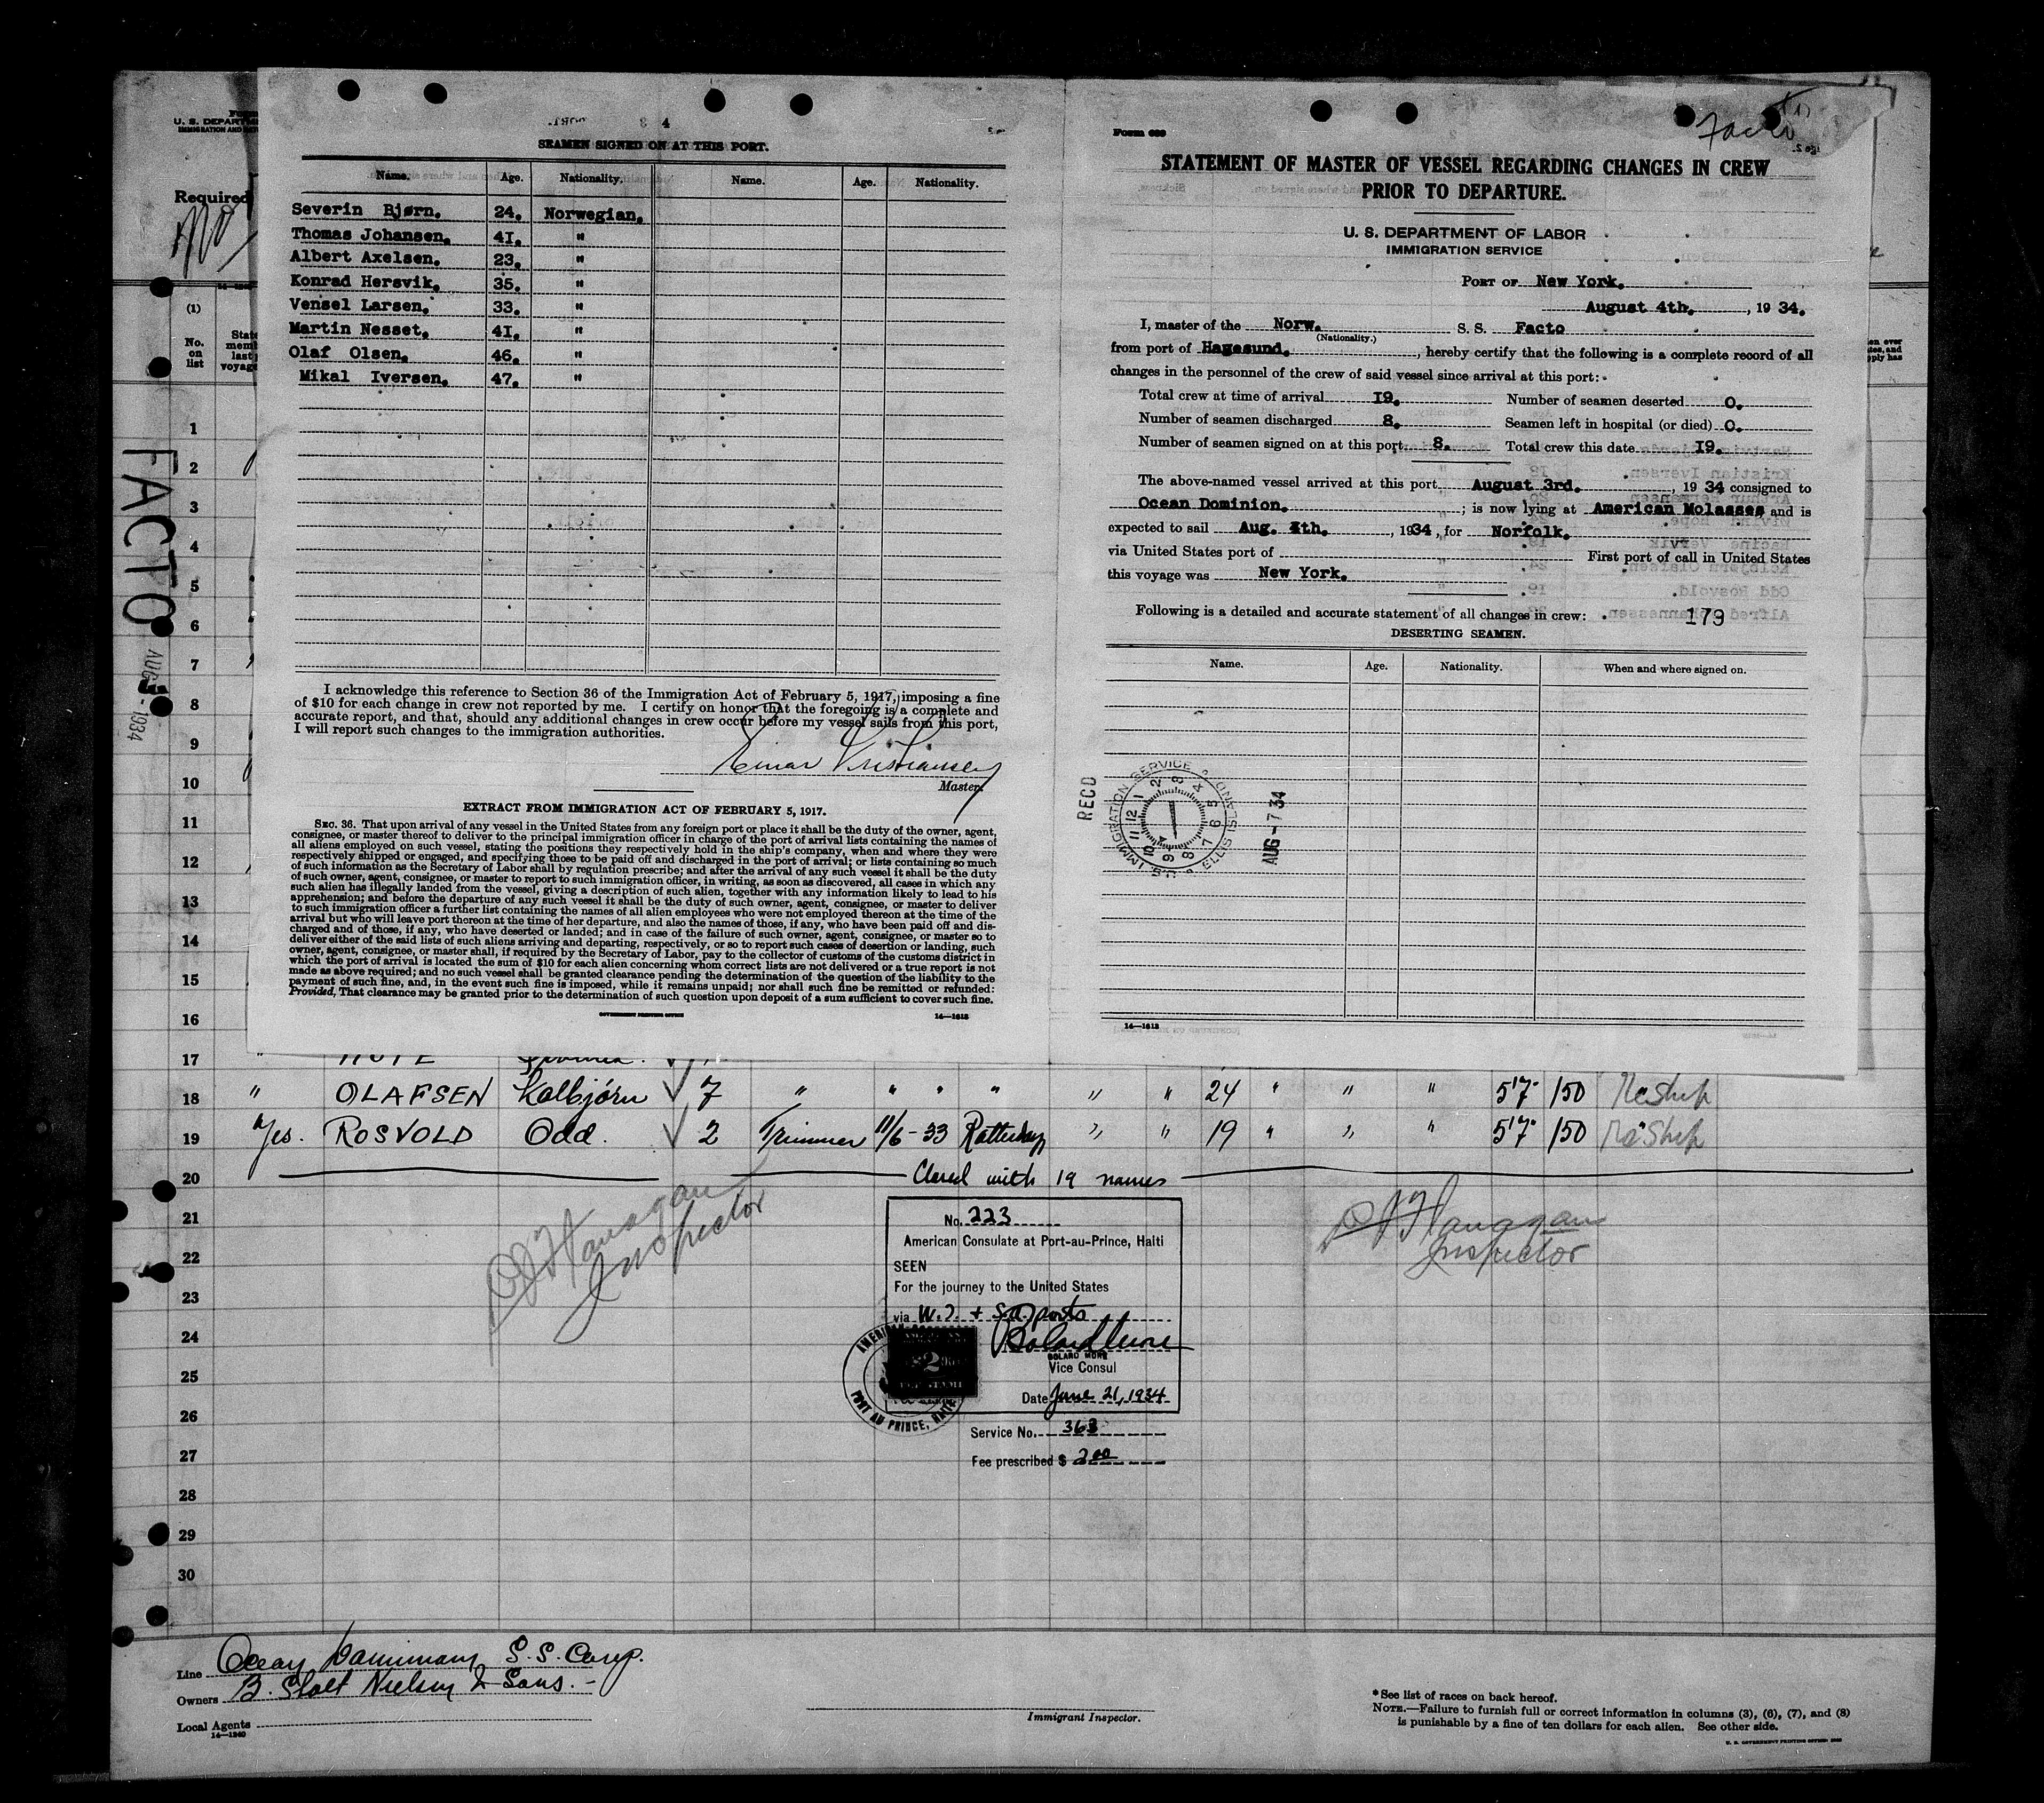 SEAMEN SIGNED ON AT THIS PORT.
Name. Age. Nationality. Name. Age. Nationality.
Severin Bjørn. 24. Norwegian.
Thomas Johansen. 41. "
Albert Axelsen. 23. "
Konrad Hersvik. 35. "
Vensel Larsen. 33. "
Martin Nesset. 41. "
Olaf Olsen. 46. "
Mikal Iversen. 47. "
I acknowledge this reference to Section 36 of the Immigration Act of February 5, 1917, imposing a fine
of $10 for each change in crew not reported by me. I certify on honor that the foregoing is a complete and
accurate report, and that, should any additional changes in crew occur before my vessel sails from this port,
I will report such changes to the immigration authorities.
Einar Kristiansen
Master.
EXTRACT FROM IMMIGRATION ACT OF FEBRUARY 5, 1917.
SEC. 36. That upon arrival of any vessel in the United States from any foreign port or place it shall be the duty of the owner, agent,
consignee, or master thereof to deliver to the principal immigration officer in charge of the port of arrival lists containing the names of
all aliens employed on such vessel, stating the positions they respectively hold in the ship's company, when and where they were
respectively shipped or engaged, and specifying those to be paid off and discharged in the port of arrival; or lists containing so much
of such information as the Secretary of Labor shall by regulation prescribe; and after the arrival of any such vessel it shall be the duty
of such owner, agent, consignee, or master to report to such immigration officer, in writing, as soon as discovered, all cases in which any
such alien has illegally landed from the vessel, giving a description of such alien, together with any information likely to lead to his
apprehension; and before the departure of any such vessel it shall be the duty of such owner, agent, consignee, or master to deliver
to such immigration officer a further list containing the names of all alien employees who were not employed thereon at the time of the
arrival but who will leave port thereon at the time of her departure, and also the names of those, if any, who have been paid off and dis-
charged and of those, if any, who have deserted or landed; and in case of the failure of such owner, agent, consignee, or master so to
deliver either of the said lists of such aliens arriving and departing, respectively, or so to report such cases of desertion or landing, such
owner, agent, consignee, or master shall, if required by the Secretary of Labor, pay to the collector of customs of the customs district in
which the port of arrival is located the sum of $10 for each alien concerning whom correct lists are not delivered or a true report is not
made as above required; and no such vessel shall be granted clearance pending the determination of the question of the liability to the
payment of such fine, and, in the event such fine is imposed, while it remains unpaid; nor shall such fine be remitted or refunded:
Provided, That clearance may be granted prior to the determination of such question upon deposit of a sum sufficient to cover such fine.
GOVERNMENT PRINTING OFFICE 14—1613
Facto
Form 689
STATEMENT OF MASTER OF VESSEL REGARDING CHANGES IN CREW
PRIOR TO DEPARTURE.
U. S. DEPARTMENT OF LABOR
IMMIGRATION SERVICE
PORT OF New York.
August 4th. , 1934.
I, master of the Norw. S. S. Facto
(Nationality.)
from port of Hagesund. , hereby certify that the following is a complete record of all
changes in the personnel of the crew of said vessel since arrival at this port:
Total crew at time of arrival 19. Number of seamen deserted 0.
Number of seamen discharged 8. Seamen left in hospital (or died) 0.
Number of seamen signed on at this port 8. Total crew this date 19.
The above-named vessel arrived at this port August 3rd. , 1934 consigned to
Ocean Dominion. ; is now lying at American Molasses and is
expected to sail Aug. 4th. , 1934, for Norfolk.
via United States port of First port of call in United States
this voyage was New York.
Following is a detailed and accurate statement of all changes in crew: 179
DESERTING SEAMEN.
Name. Age. Nationality. When and where signed on.
RECD
U.S. IMMIGRATION SERVICE ELLIS ISLAND
AUG-7 34
14—1613
U. S. DEPARTM
IMMIGRATION AND
Required
(1)
No.
on
list
State
memb
last
voyage
FACTO
AUG 1934
1
2
3
4
5
6
7
8
9
10
11
12
13
14
15
16
17
18 " OLAFSEN Kolbjörn 7 " " " " " " 24 " " " 5'7" 150 Reship
19 Yes. ROSVOLD Odd. 2 Trimmer 11/6-33 Rotterdam " " 19 " " " 5'7" 150 Reship
20 Closed with 19 names
21
22
23
24
25
26
27
28
29
30
Flanagan
Inspector
Flanagan
Inspector
No. 223
American Consulate at Port-au-Prince, Haiti
SEEN
For the journey to the United States
via W.I. + S.A. ports
BOLARD MORE
Vice Consul
Date June 21, 1934
AMERICAN
PORT AU PRINCE, HAITI
Service No. 363
Fee prescribed $ 2.00
Line Ocean Dominion S.S. Corp.
Owners B. Stolt Nielsen & Sons.
Local Agents
14—1240
Immigrant Inspector.
*See list of races on back hereof.
NOTE.—Failure to furnish full or correct information in columns (3), (6), (7), and (8)
is punishable by a fine of ten dollars for each alien. See other side.